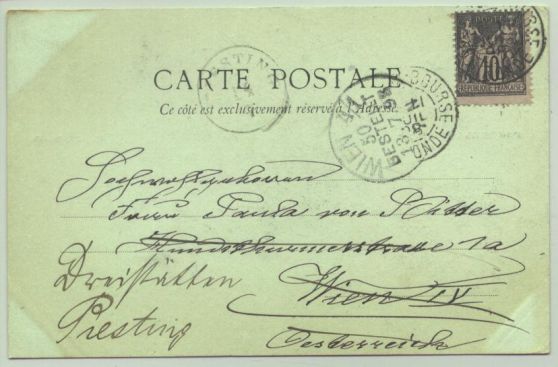 CARTE POSTALE
Ce côté est exclusivement réservé à l'Adresse.
POSTE
10
RÉPUBLIQUE FRANÇAISE
BOURSE
WIEN
BESTELLT
Hochwohlgeboren
Frau Paula von Ritter
Hundsthurmerstrasse 1a
Wien IV
Oesterreich
Dreistätten
Piesting